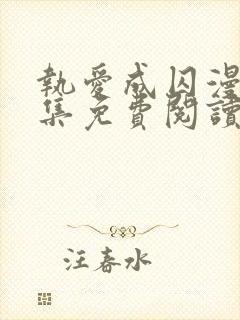 執愛成囚漫
集免費閱讀
汪春水